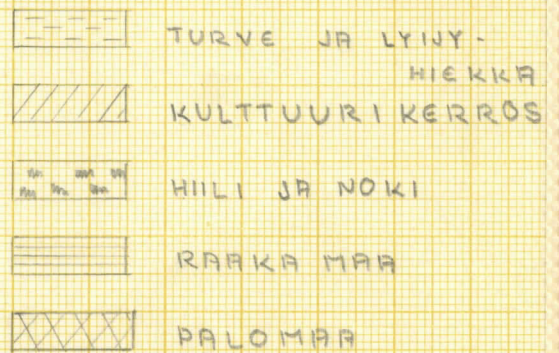 TURVE JA LYIJY-
HIEKKA
KULTTUURIKERROS
HIILI JA NOKI
RAAKA MAA
PALOMAA